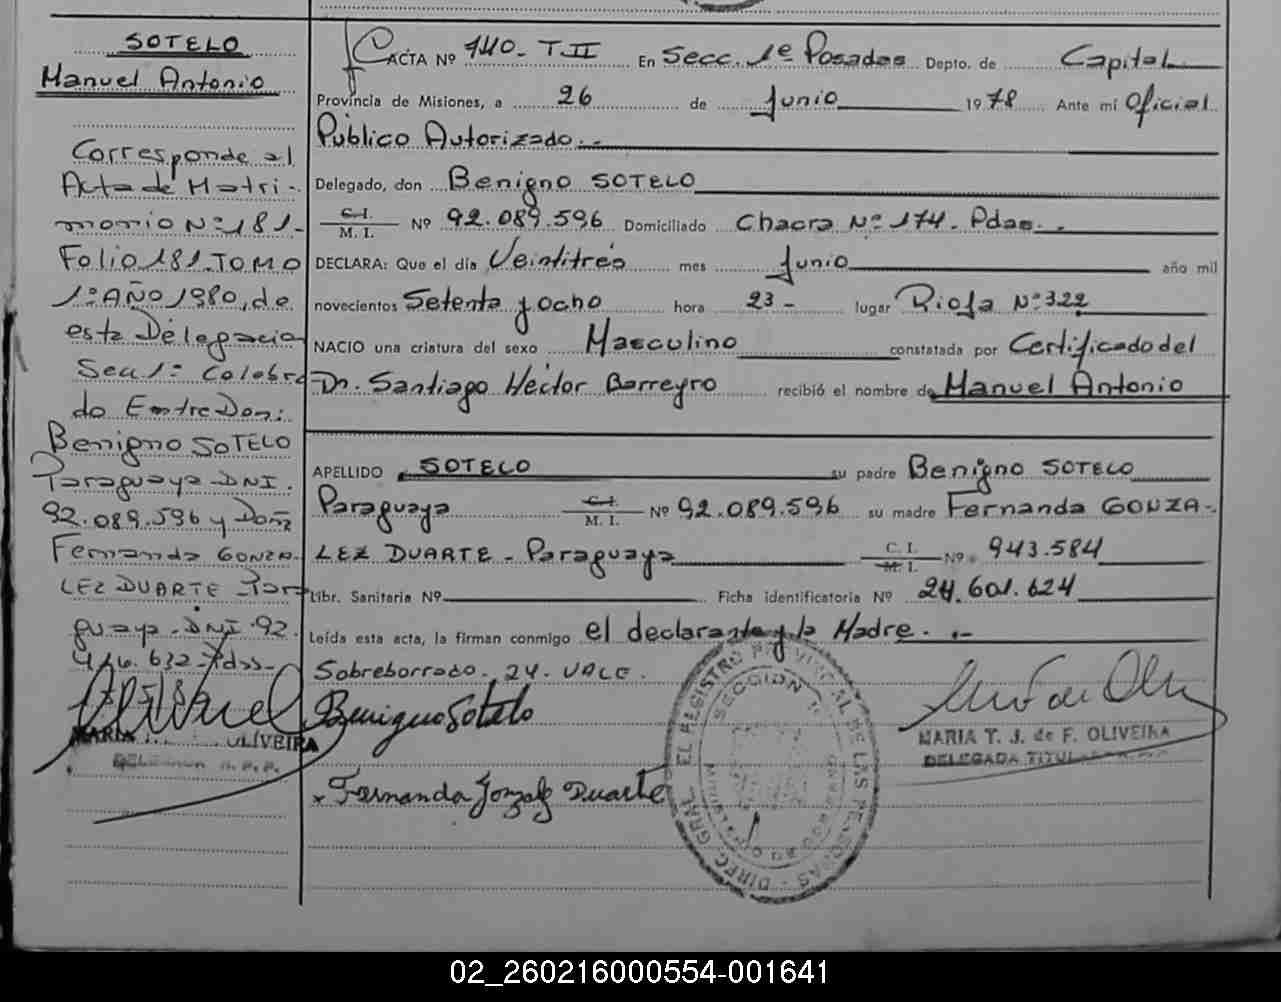 SOTELO
Manuel Antonio
Corresponde al
Acta de Matri-
monio Nº 181-
Folio 181. TOMO
1º AÑO 1980, de
esta Delegacia
Secc 1º Celebra
do Entre Don:
Benigno SOTELO
Paraguaya-DNI.
92.089.596 y Doña
Fernanda GONZA-
LEZ DUARTE Para
guaya-DNI.92.
632-Pdas-
MARIA OLIVEIRA
ACTA Nº 740-T.II En Secc. 1º Posadas Depto. de Capital
Provincia de Misiones, a 26 de Junio 1978 Ante mí Oficial
Público Autorizado.-
Delegado, don Benigno SOTELO
C.I. / M. I. Nº 92.089.596 Domiciliado Chacra Nº 174. Pdas.
DECLARA: Que el día Veintitrés mes Junio año mil
novecientos Setenta y ocho hora 23- lugar Rioja Nº 322
NACIO una criatura del sexo Masculino constatada por Certificado del
Dr. Santiago Héctor Barreyro recibió el nombre de Manuel Antonio
APELLIDO SOTELO su padre Benigno SOTELO
Paraguaya C.I. / M. I. Nº 92.089.596 su madre Fernanda GONZA-
LEZ DUARTE - Paraguaya C. I. / M. I. Nº 943.584
Libr. Sanitaria Nº Ficha identificatoria Nº 24.601.624
Leída esta acta, la firman conmigo el declarante y la Madre. .-
Sobreborrado. 24. VALE.
Benigno Sotelo
Fernanda Gonzalez Duarte
DIREC. GRAL. EL REGISTRO PROVINCIAL DE LAS PERSONAS
SECCION 1º
MARIA T. J. de F. OLIVEIRA
DELEGADA TITULAR
02_260216000554-001641